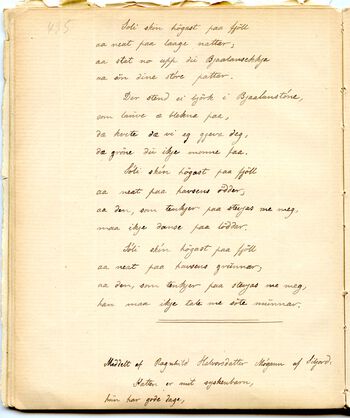 495
Soli skin högast paa fjöll
aa neat paa laage natter,
aa stat no upp du Bjaalanschkja
aa syn dine store patter.
Der stend ei björk i Bjaalanstöne,
som lauve æ blekna paa,
da kvite da vi eg gjeva deg,
da gröne du ikje monne faa.
Soli skin högast paa fjöll
aa neat paa havsens ödder,
aa den, som tenkjer paa steyas me meg,
maa ikje danse paa lödder.
Soli skin högast paa fjöll
aa neat paa havsens grunnar,
aa den, som tenkjer paa steyas me meg,
han maa ikje tale me söte munnar.
Meddelt af Ragnhild Halvorsdatter Mogenn af Siljord.
Haten er mit syskenbarn,
hun har gode dage,